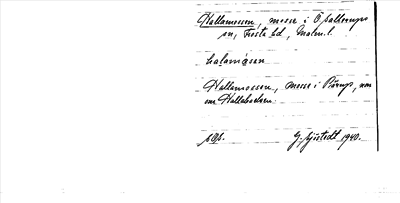 Hallamossen, mosse i Ö Sallerups
sn, Frosta hd, Malm. l.
halamosen
Hallamossen, mosse i Pärup, nv
om Hallabacken.
G. Sjöstedt 1940.